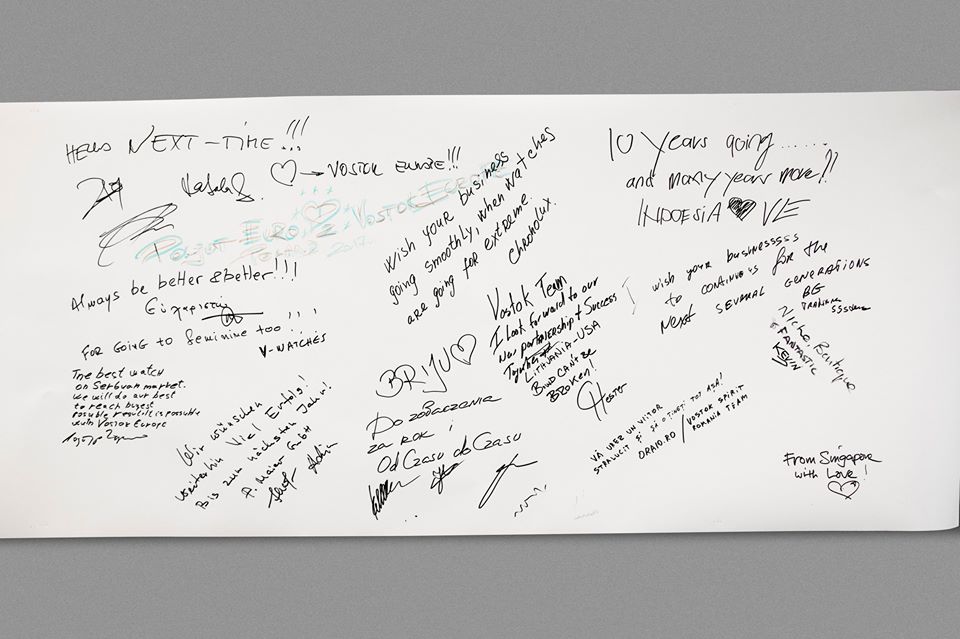 HELLO NEXT-TIME!!!
♡ → VOSTOK EUROPE!!!
Always be better & better!!!
Ευχαριστώ
FOR GOING to feminine too!!!
V-WATCHES
The best watch
on Serbian market.
we will do our best
to reach
possible
with Vostok Europe
Wir wünschen
weiterhin viel Erfolg!
Bis zum nächsten Jahr!
P. Maier GmbH
wish your business
going smoothly, when watches
are going for extreme.
Chronolux.
BRIJU ♡
Do zobaczenia
za rok i
Od Czasu do Czasu
Vostok Team
I Look forward to our
New partnership & Success
Together
LITHUANIA-USA
BOND CAN'T BE
BROKEN!
Hester
10 Years going......
and many years more!!
INDOESIA ♥ VE
I wish your businessss
to continues for the
Next several generations
BG
Niche, Boutique
& FANTASTIC
KEVIN
VĂ UREZ UN VIITOR
STRĂLUCIT ȘI SĂ O ȚINEȚI TOT AȘA!
DRAID.RO / VOSTOK SPIRIT
ROMANIA TEAM
From Singapore
with Love!